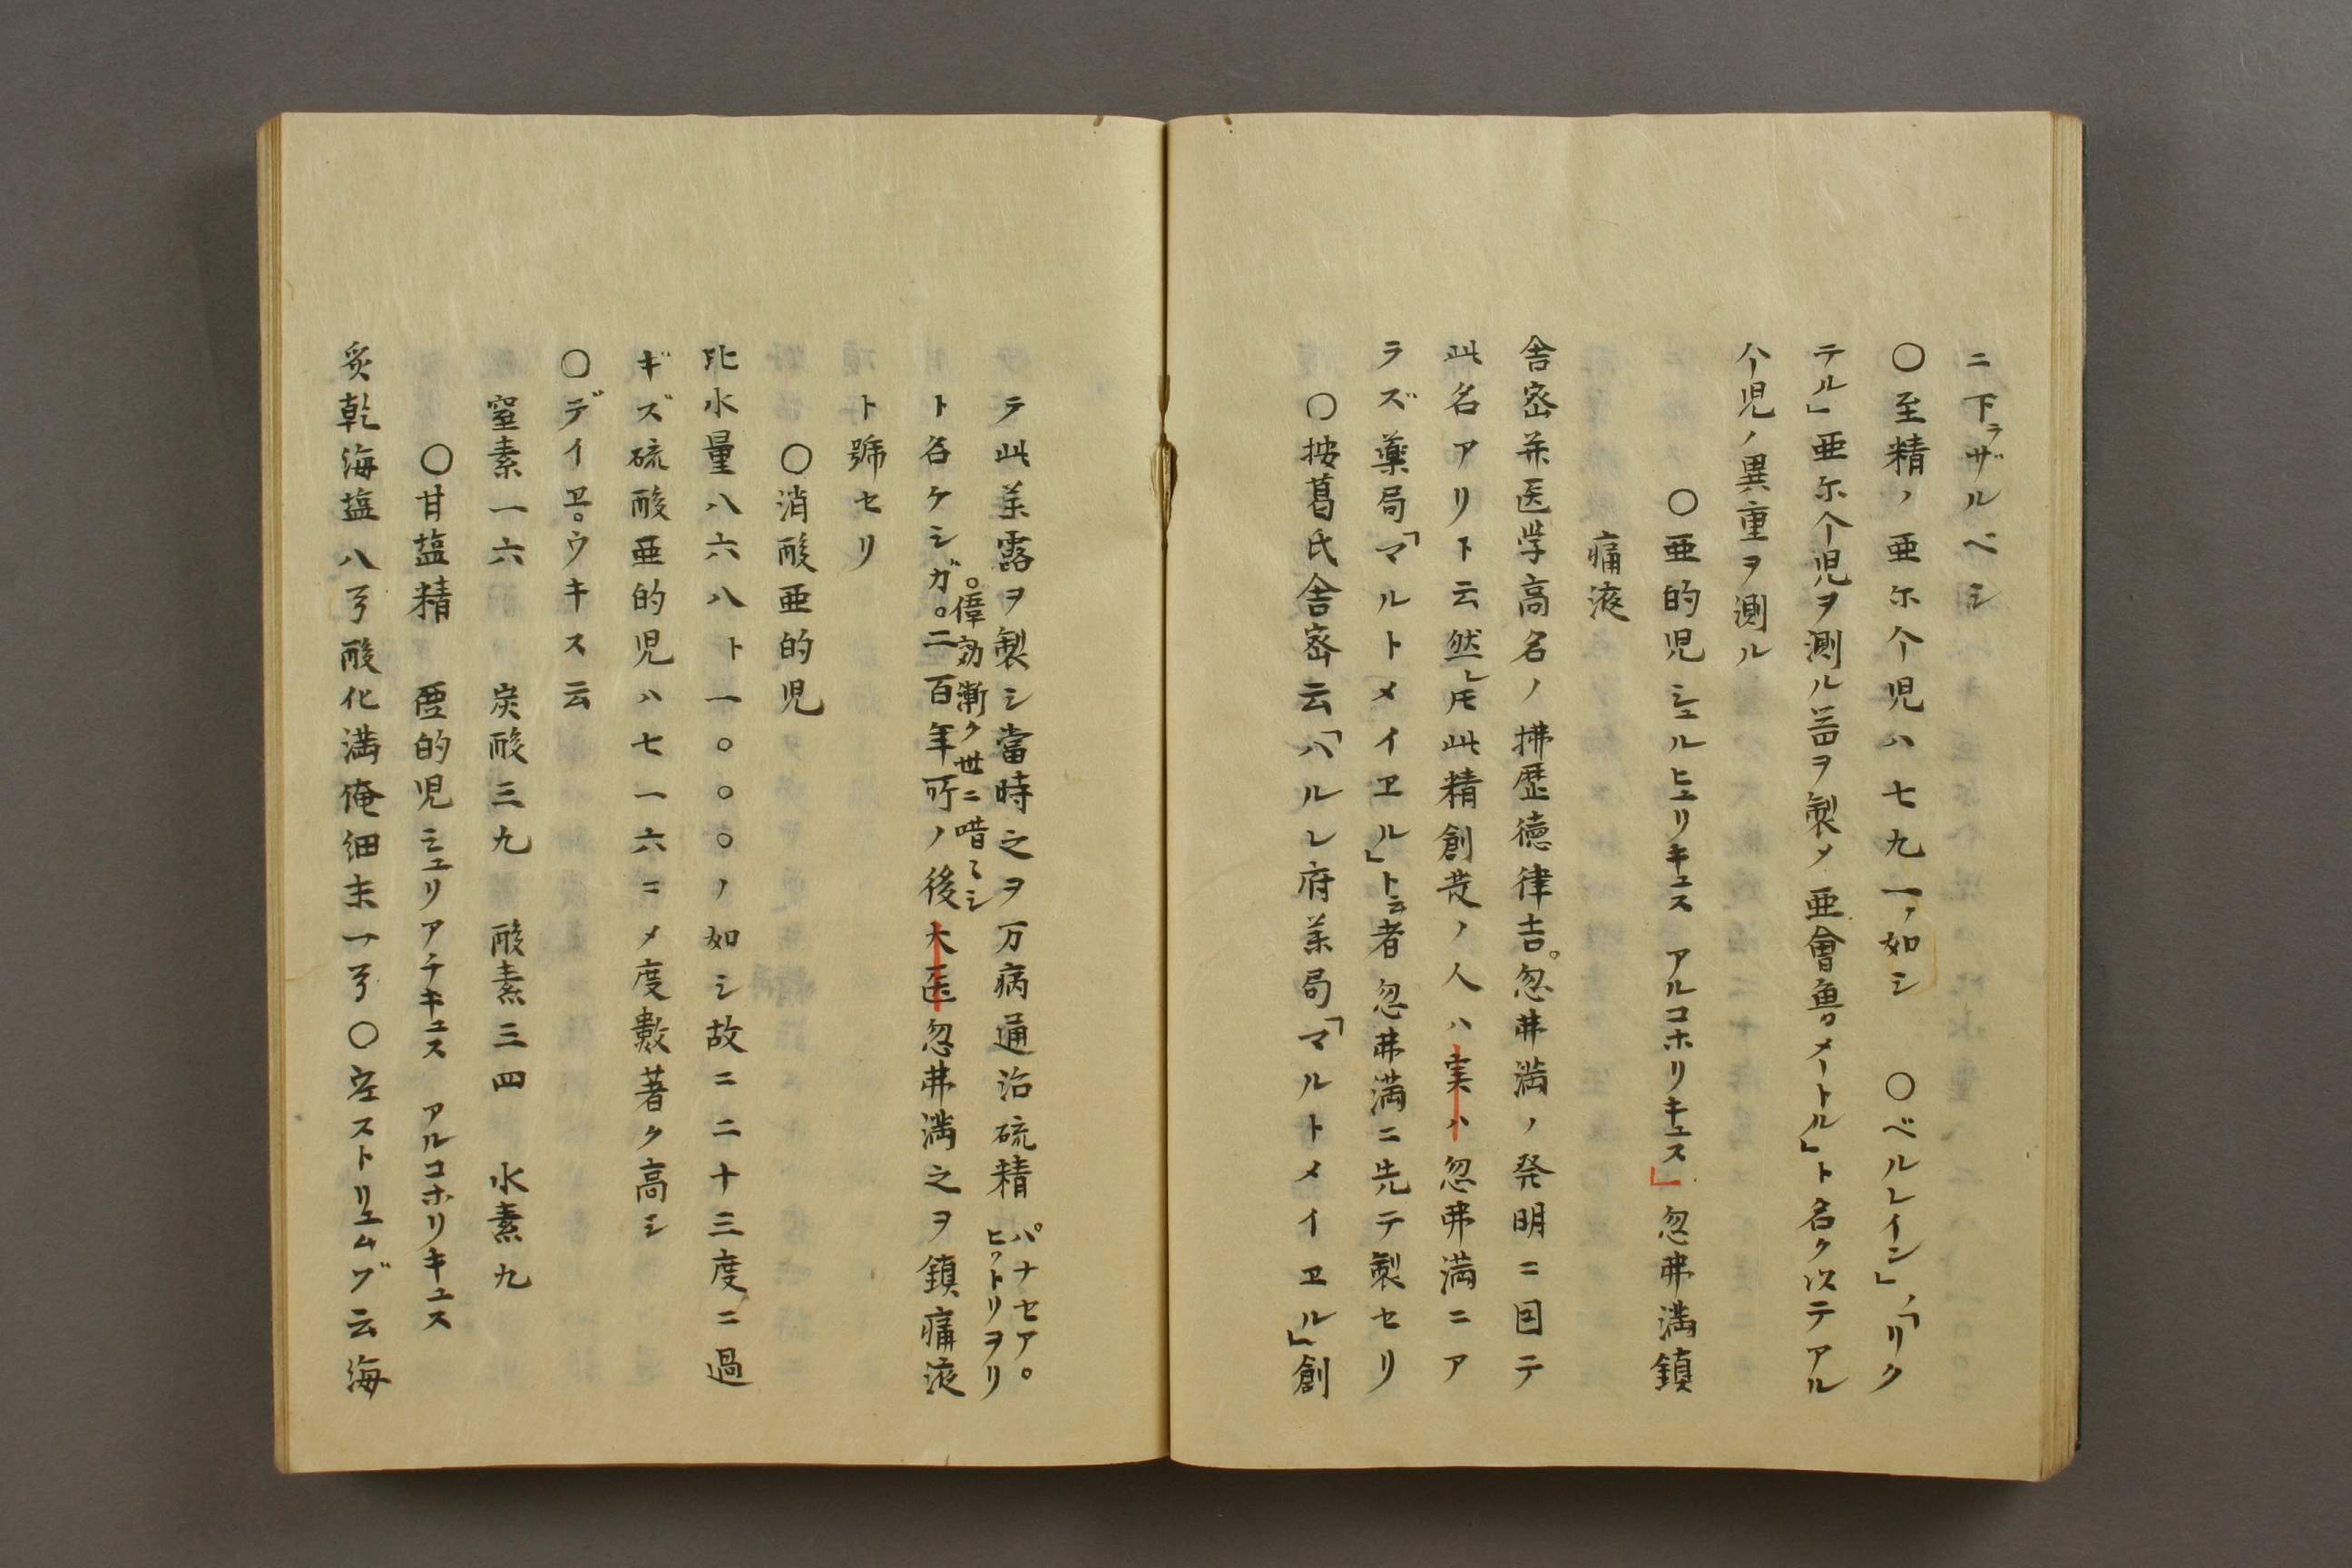 ニ下ラザルベシ
〇至精ノ亜尓个児ハ七九一ノ如シ　〇ベルレイン」ノ「リク
テル」亜尓个児ヲ測ル噐ヲ製メ亜會魯メートル」ト名ク以テアル
个児ノ異重ヲ測ル
〇亜的児シュルヒュリキュス　アルコホリキュス」忽弗満鎮
痛液
舎密并医学高名ノ拂歴徳律吉。忽弗満ノ発明ニ因テ
此名アリト云然レ𪜈此精創造ノ人ハ実ハ忽弗満ニア
ラズ薬局「マルトメイヱル」ト云者忽弗満ニ先テ製セリ
〇按葛氏舎密云「ハルレ府薬局「マルトメイヱル」創
テ此薬露ヲ製シ當時之ヲ万病通治硫精パナセア。ヒットリヲリ
ト名ケシガ。二百年可ノ後大医忽弗満之ヲ鎮痛液
。偉効漸ク世ニ喈々シ
ト號セリ
〇消酸亜的児
比水量八六八ト一〇〇〇ノ如シ故ニ二十三度ニ過
ギズ硫酸亜的児ハ七一六ニメ度數著ク高シ
〇デイヱ。ウキス云
窒素一六　炭酸三九　酸素三四　水素九
〇甘塩精　亜的児シュリアチキュス　アルコホリキュス
炙乾海塩八ヲ酸化満俺細末一ヲ〇左ストリュムブ云海